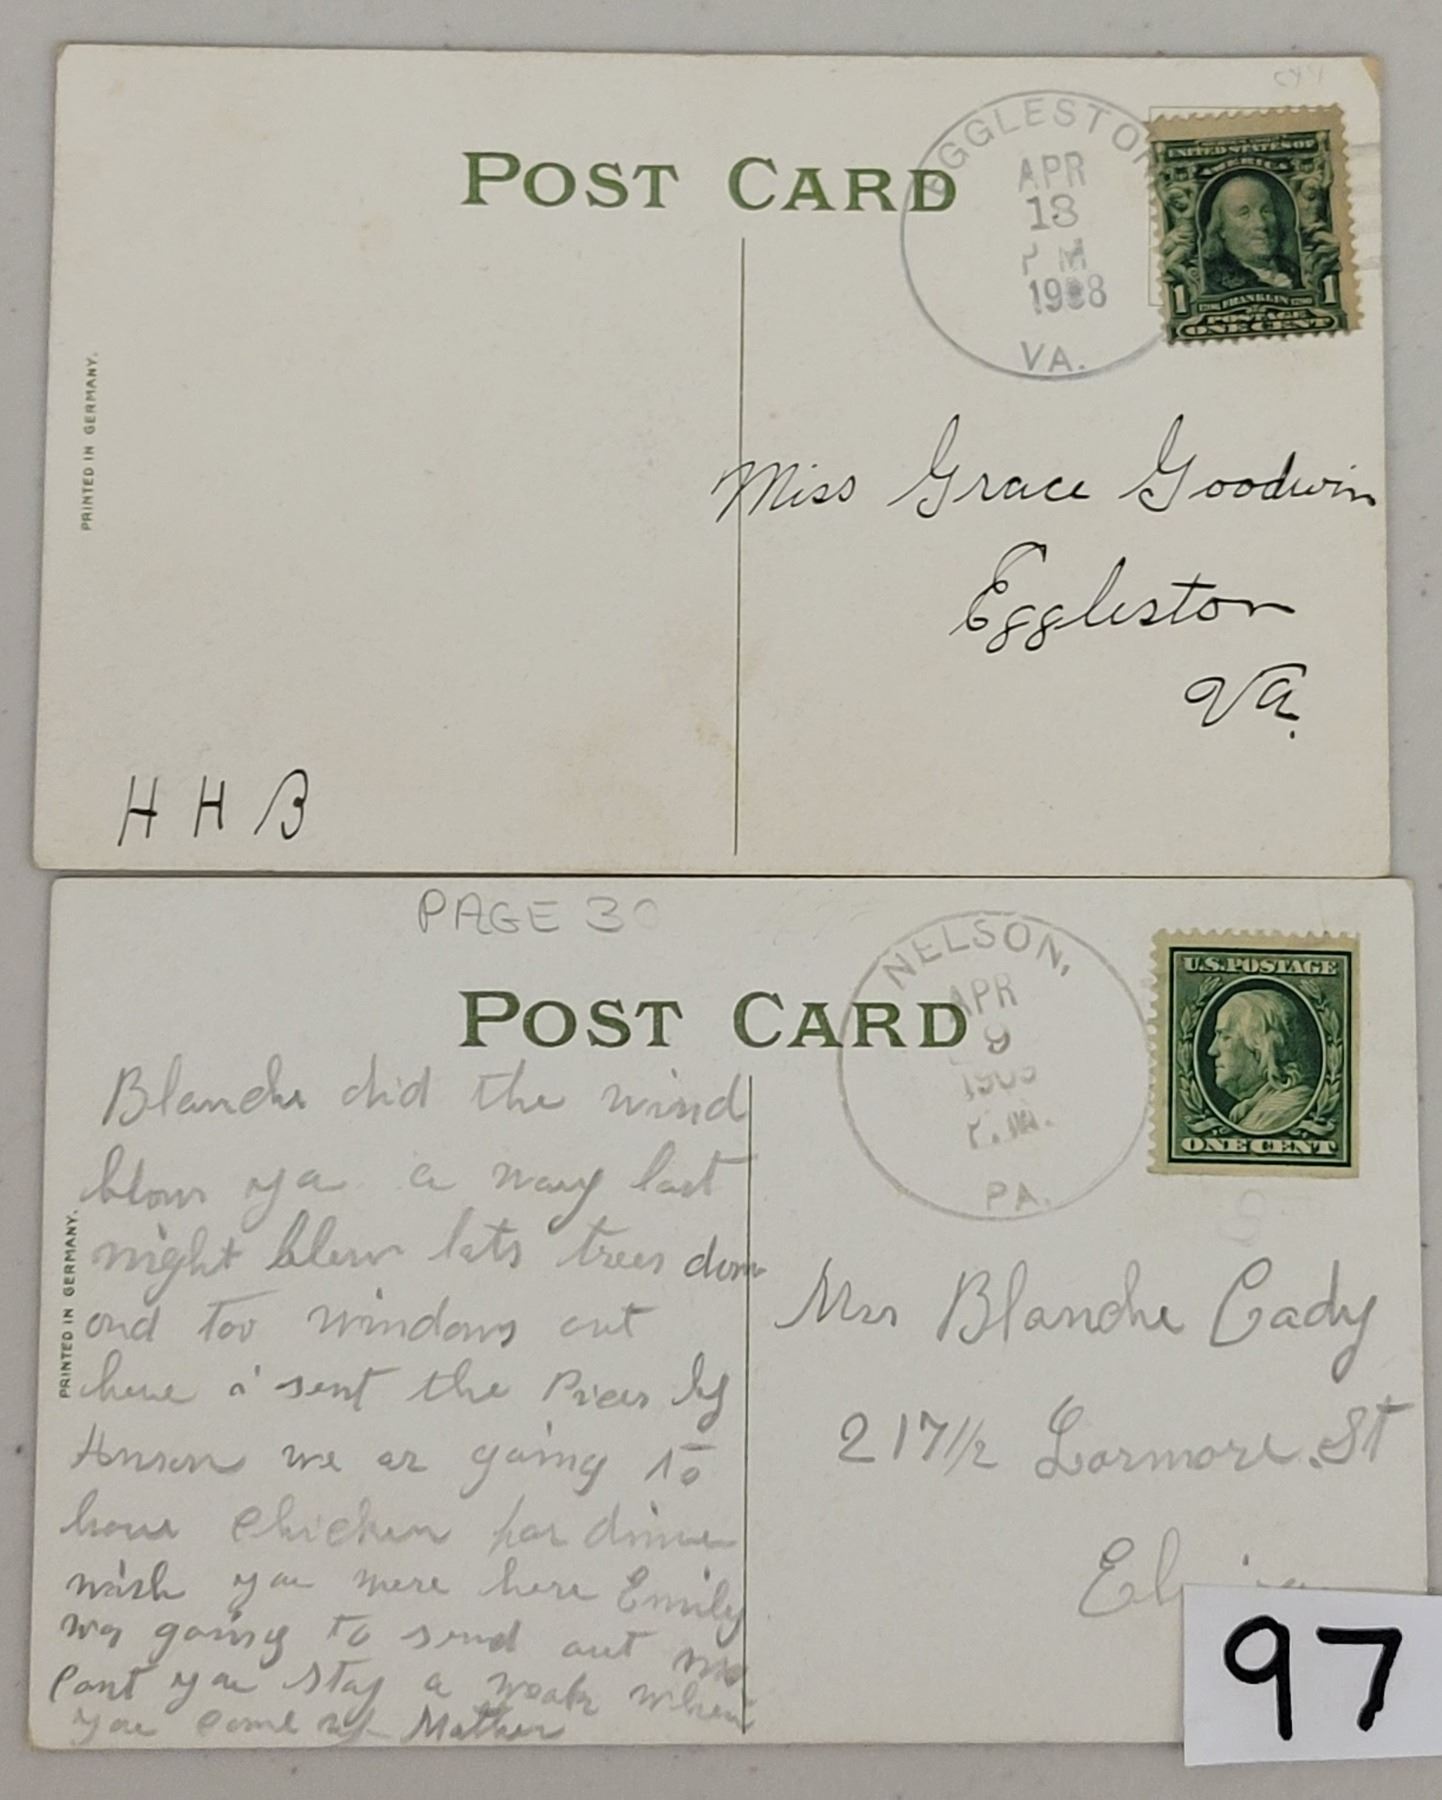 POST CARD
EGGLESTON
APR
13
PM
1908
VA.
UNITED STATES OF
AMERICA
1 FRANKLIN 1
POSTAGE
ONE CENT
PRINTED IN GERMANY.
Miss Grace Goodwin
Eggleston
Va.
H H B
PAGE 30
POST CARD
NELSON,
APR
9
P.M.
PA.
U.S. POSTAGE
ONE CENT
PRINTED IN GERMANY.
Blanche did the wind
blow you a way last
night blew lots trees down
and too windows out
here i sent the Pices by
we ar going to
have chicken for dinner
wish you were here Emily
was going to send out
Cant you stay a weak when
you come up Mother
Mrs Blanche Cady
217 1/2 Lormore. St
97